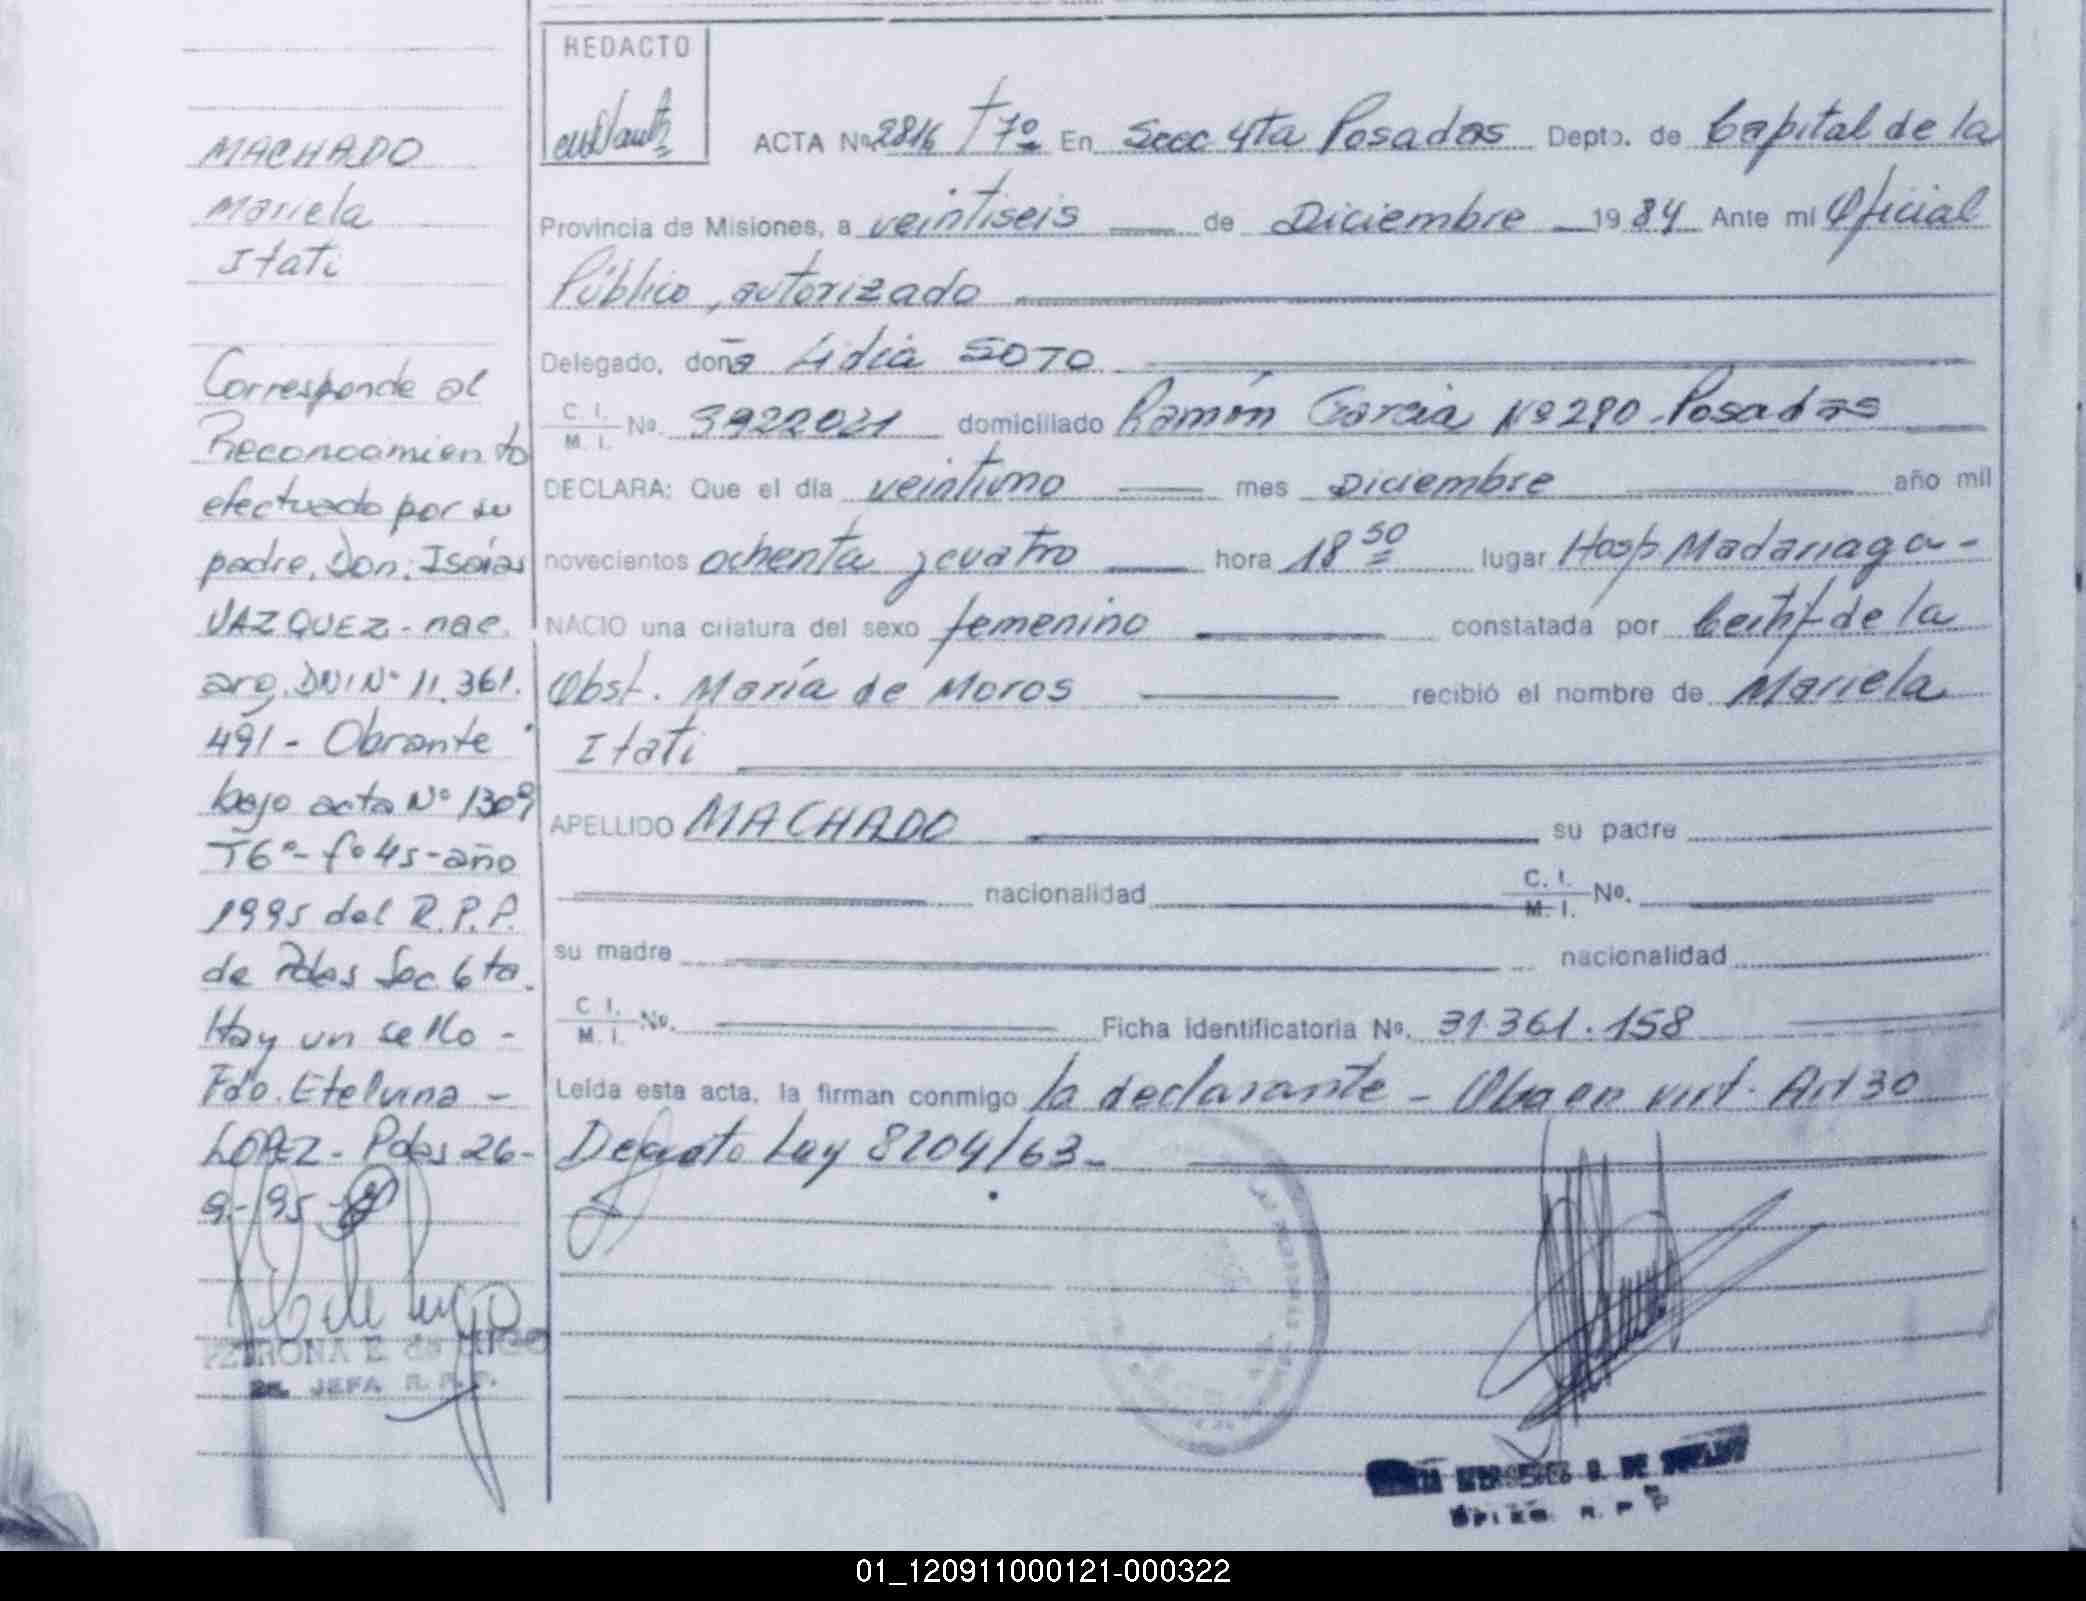 MACHADO
Mariela
Itati
Corresponde al
Reconocimiento
efectuado por su
padre, Don: Isaías
VAZQUEZ - nac.
arg. DNI Nº 11.361.
491 - Obrante
bajo acta Nº 1309
Tº6º - fº 45 - año
1995 del R.P.P.
de Pdas Sec. 6ta.
Hay un sello -
Fdo. Etelvina -
LOPEZ - Pdas 26-
9-95
PETRONA E. de LUGO
2a. JEFA R. P. P.
REDACTO
ACTA Nº 2816 Tº 7º En Secc 4ta Posadas Depto. de Capital de la
Provincia de Misiones, a veintiseis de Diciembre 1984 Ante mí Oficial
Público, autorizado
Delegado, doña Lidia SOTO
C. I.
M. I. Nº. 3922021 domiciliado Ramón Garcia Nº 290 - Posadas
DECLARA: Que el día veintiuno mes Diciembre año mil
novecientos ochenta y cuatro hora 18 50 lugar Hosp. Madariaga -
NACIO una criatura del sexo femenino constatada por Certif de la
Obst. María de Moros recibió el nombre de Mariela
Itati
APELLIDO MACHADO su padre
nacionalidad C. I.
M. I. Nº.
su madre nacionalidad
C. I.
M. I. Nº. Ficha identificatoria Nº. 31.361.158
Leída esta acta, la firman conmigo la declarante - Obra en virt. Art 30
Decreto Ley 8204/63 -
R. P. P.
01_120911000121-000322